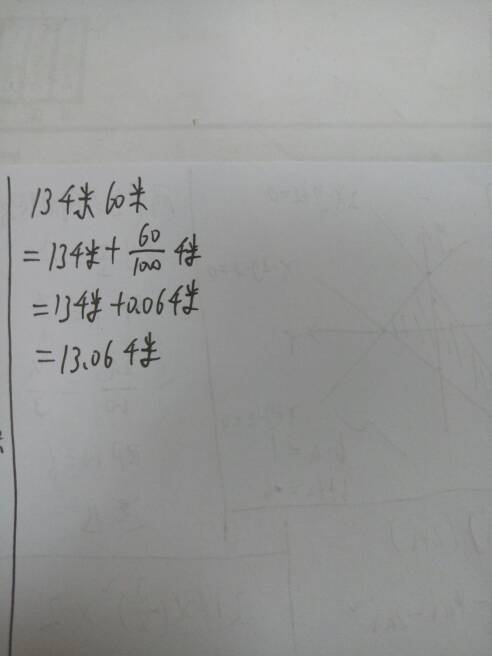 13千米60米
=13千米+60/1000千米
=13千米+0.06千米
=13.06千米